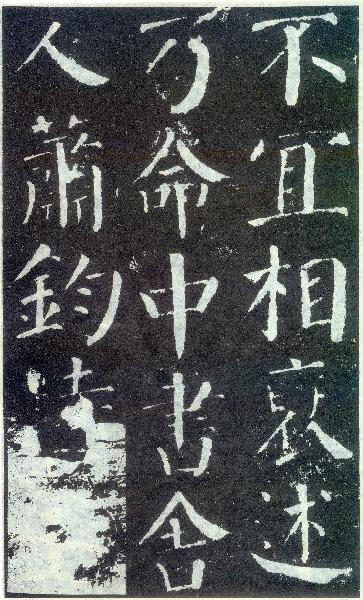 不宜相褒述
乃命中書舍
人蕭鈞